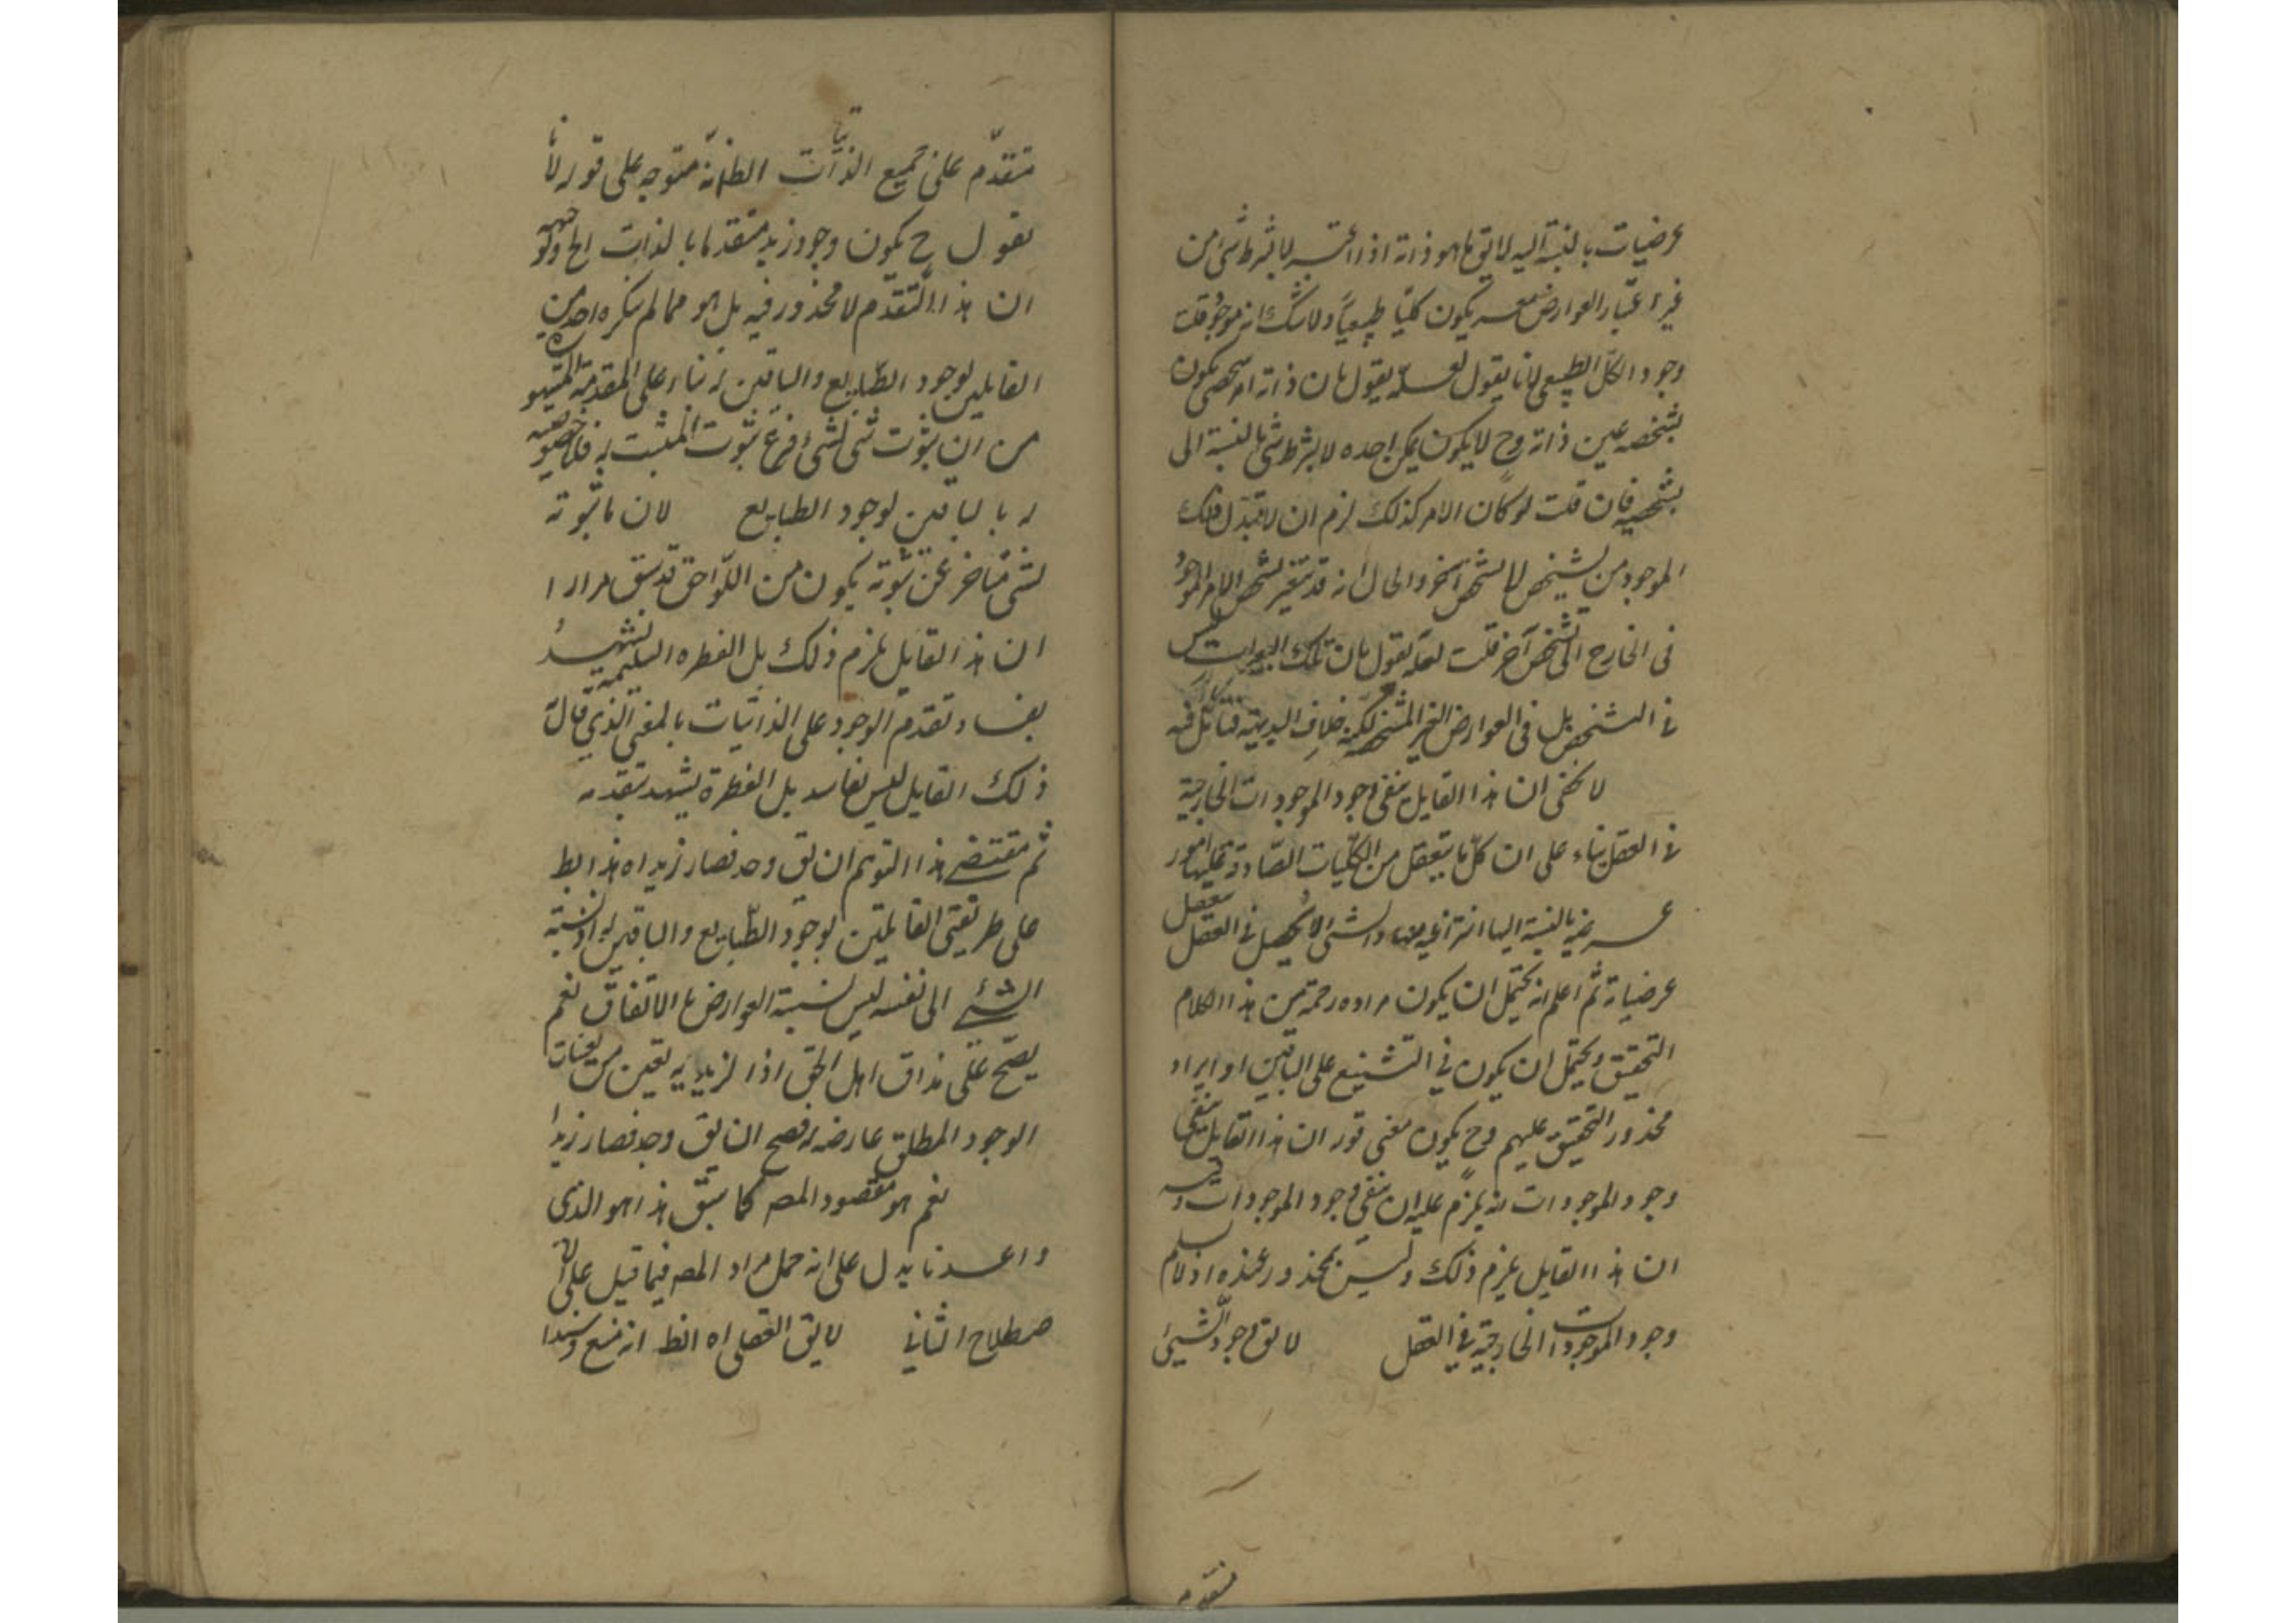 عرضيات بالنسبة اليه لا يق ما هو ذاته اذا اعتبر لا بشرط شئ من
غير اعتبار العوارض معه يكون كليا طبيعيا ولا شك انه موجود قلت
وجود الكل الطبيعى لانا يقول لعله يقول بان ذاته امر شخصى يكون
تشخصه عين ذاته وح لا يكون يمكن اخذه لا بشرط شئ بالنسبة الى
تشخصه فان قلت لو كان الامر كذلك لزم ان لا يتبدل ذلك
الموجود من شخص الى شخص آخر والحال انه قد يتغير تشخص الامر الموجود
فى الخارج الى تشخص آخر قلت لعله يقول بان تلك التبدلات ليس
فى التشخص بل فى العوارض الغير المشخصة لكنه خلاف البديهة فتأمل فيه
لا يخفى ان هذا القايل ينفى وجود الموجودات الخارجية
فى العقل بناء على ان كل ما يتعقل من الكليات الصادقة عليها امور
عرضية بالنسبة اليها انتزاعية منها والشئ لا يحصل فى العقل بتعقل
عرضياته ثم اعلم انه يحتمل ان يكون مراده رحمه من هذا الكلام
التحقيق ويحتمل ان يكون فى التشنيع على الباقين او ايراد
محذور التحقيق عليهم وح يكون معنى قوله ان هذا القايل ينفى
وجود الموجودات انه يلزم عليه ان ينفى وجود الموجودات وفيه
ان هذا القايل يلزم ذلك وليس بمحذور عنده اذ لا نسلم
وجود الموجودات الخارجية فى العقل لا يق وجود الشئ
متقدم
متقدم على جميع الذاتيات الظ انه متوجه على قوله لانا
نقول ح يكون وجود زيد متقدما بالذات الخ وجهه
ان هذا التقدم لا محذور فيه بل هو مما لم ينكره احد من
القايلين لوجود الطبايع والباقين له بناء على المقدمة المشهورة
من ان ثبوت شئ لشئ فرع ثبوت المثبت له فلا خصوصية
له بالباقين لوجود الطبايع لان ما ثبوته
لشئ متأخر عن ثبوته يكون من اللواحق قد سبق مرارا
ان هذا القايل يلزم ذلك بل الفطره السليمة يشهد
بفساد تقدم الوجود على الذاتيات بالمعنى الذى قاله
ذلك القايل ليس بفاسد بل الفطرة يشهد بتقدمه
ثم مقتضى هذا التوهم ان يق وجد فصار زيدا اه هذا بط
على طريقتى القايلين لوجود الطبايع والباقين له اذ نسبة
الشئ الى نفسه ليس نسبة العوارض بالاتفاق نعم
يصح على مذاق اهل الحق اذا لزيدية تعين من تعينات
الوجود المطلق عارضه له فصح ان يق وجد فصار زيدا
نعم هو مقصود المصه كما سبق هذا هو الذى
واعدنا يدل على انه حمل مراد المصه فيما قيل على الا
صطلاح الثانى لا يق الفصل اه الظ انه منع وسندا